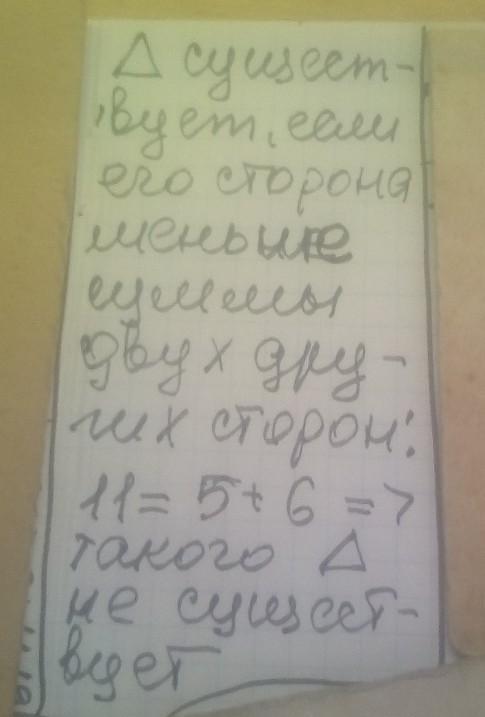 Δ сущест-
вует, если
его сторона
меньше
суммы
двух дру-
гих сторон:
11 = 5 + 6 =>
такого Δ
не сущест-
вует